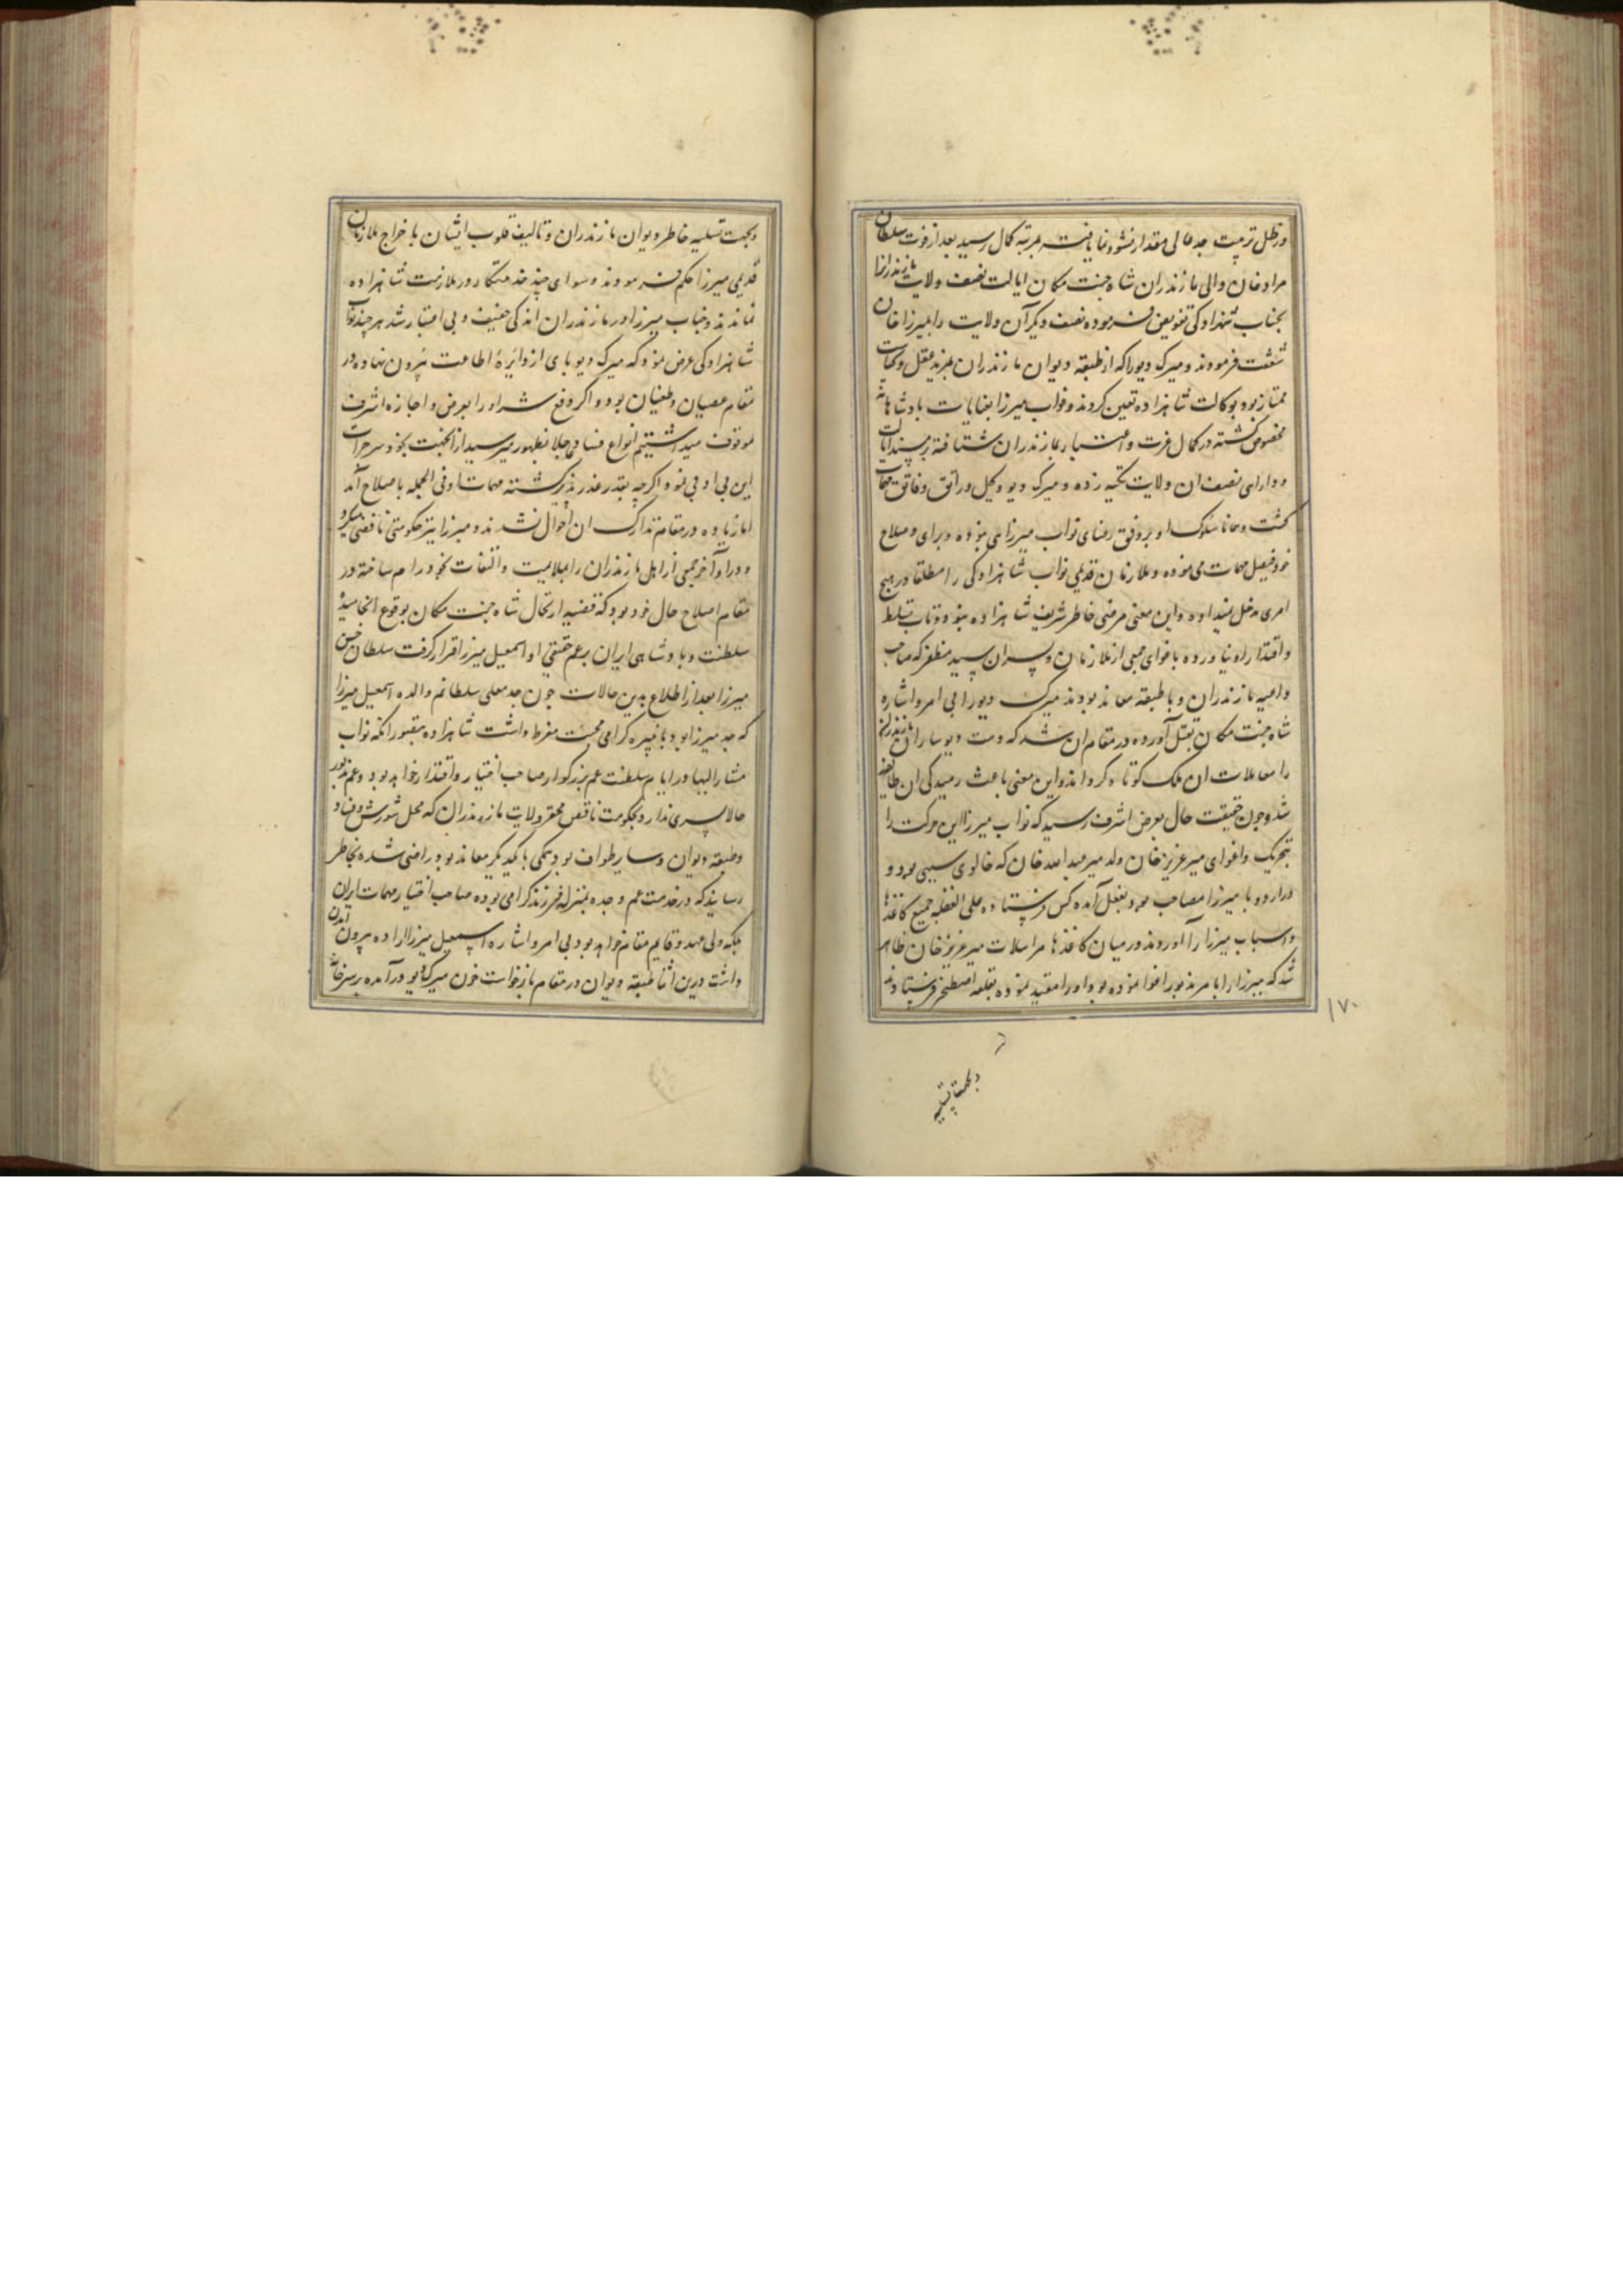 در ظل تربیت جد عالی مقدار نشو و نما یافته بمرتبه کمال رسید بعد از فوت سلطان
مراد خان والی مازندران شاه جنت مکان ایالت نصف ولایت مازندرانرا
بجناب شهزادکی تفویض فرموده نصف دیکر آن ولایت را بمیرزا خان
شفقت فرمودند و میرک دیو را که از طبقه دیوان مازندران بمزید عقل و کفایت
ممتاز بود بوکالت شاهزاده تعین کردند و نواب میرزا بعنایات بادشاهانه
مخصوص کشته در کمال عزت و اعتبار بمازندران شتافته بر مسند ایالت
و دارایی نصف ان ولایت تکیه زده و میرک دیو وکیل و راتق و فاتق مهمات
کشت و همانا سلوک او بر وفق رضای نواب میرزا نمی بوده و برای و صلاح
خود فیصل مهمات می نموده و ملازمان قدیمی نواب شاهزادکی را مطلقا در هیچ
امری مدخل نمیداده و این معنی مرضی خاطر شریف شاهزاده نبود و تاب تسلط
و اقتدار او نیاورده باغوای جمعی از ملازمان و پسران سید مظفر که صاحب
داعیه مازندران و با طبقه معاند بودند میرک دیو را بی امر و اشاره
شاه جنت مکان بقتل آورده در مقام ان شد که دست دیوساران مازندران
را از معاملات ان ملک کوتاه کرداند و این معنی باعث رمیدکی ان طایفه
شد و چون حقیقت حال بعرض اشرف رسید که نواب میرزا این حرکت را
بتحریک و اغوای میر عزیز خان ولد میر عبد الله خان که خالوی سببی بود و
در اردو با میرزا مصاحب بود بفعل آمده کس فرستاده علی الغفله جمیع کاغذها
و اسباب میرزا را آوردند در میان کاغذها مراسلات میر عزیز خان ظاهر
شد که میرزا را بامر مزبور اغوا نموده بود او را مقید نموده بقلعه اصطخر فرستادند
۱۷۰
و بجهت تسلیه
و بجهت تسلیه خاطر دیوان مازندران و تالیف قلوب ایشان باخراج ملازمان
قدیمی میرزا حکم فرمودند و سوای چند خدمتکار در ملازمت شاهزاده
نماندند و جناب میرزا در مازندران اندکی خفیف و بی اعتبار شد هر چند نواب
شاهزادکی عرض نمود که میرک دیو پای از دایرهٔ اطاعت بیرون نهاده در
مقام عصیان و طغیان بود و اکر دفع شر او را بعرض و اجازه اشرف
موقوف میداشتیم انواع فساد بظهور میرسید از انجهت بخود سر جرات
این بی ادبی نمود اکرچه بقدر عذر پذیر کشته مهمات او فی الجمله باصلاح آمد
اما زیاده در مقام تدارک ان احوال نشدند و میرزا نیز حکومتی ناقص میکرد
و در اواخر جمعی از اهل مازندران را بملایمت و التفات بخود رام ساخته در
مقام اصلاح حال خود بود که قضیه ارتحال شاه جنت مکان بوقوع انجامیده
سلطنت و بادشاهی ایران بر عم حقیقی او اسمعیل میرزا قرار کرفت سلطان حسن
میرزا بعد از اطلاع بدین حالات چون جده معلی سلطانم والده اسمعیل میرزا
که جده میرزا بود با نبیره کرامی محبت مفرط داشت شاهزاده بتصور انکه نواب
مشار الیها در ایام سلطنت عم بزرکوار صاحب اختیار و اقتدار خواهد بود و عم مزبور
حالا پسری ندارد بحکومت ناقص محقر ولایت مازندران که محل شورش و فساد
و طبقه دیوان و سایر طوایف بود همکی با یکدیکر معاند بود راضی نشده بخاطر
رسانید که در خدمت عم و جده بمنزله فرزند کرامی بوده صاحب اختیار مهمات ایران
بلکه ولی عهد و قایم مقام خواهد بود بی امر و اشاره اسمعیل میرزا اراده بیرون آمدن
داشت درین اثنا طبقه دیوان در مقام بازخواست خون میرک دیو درآمده بر سر خانه